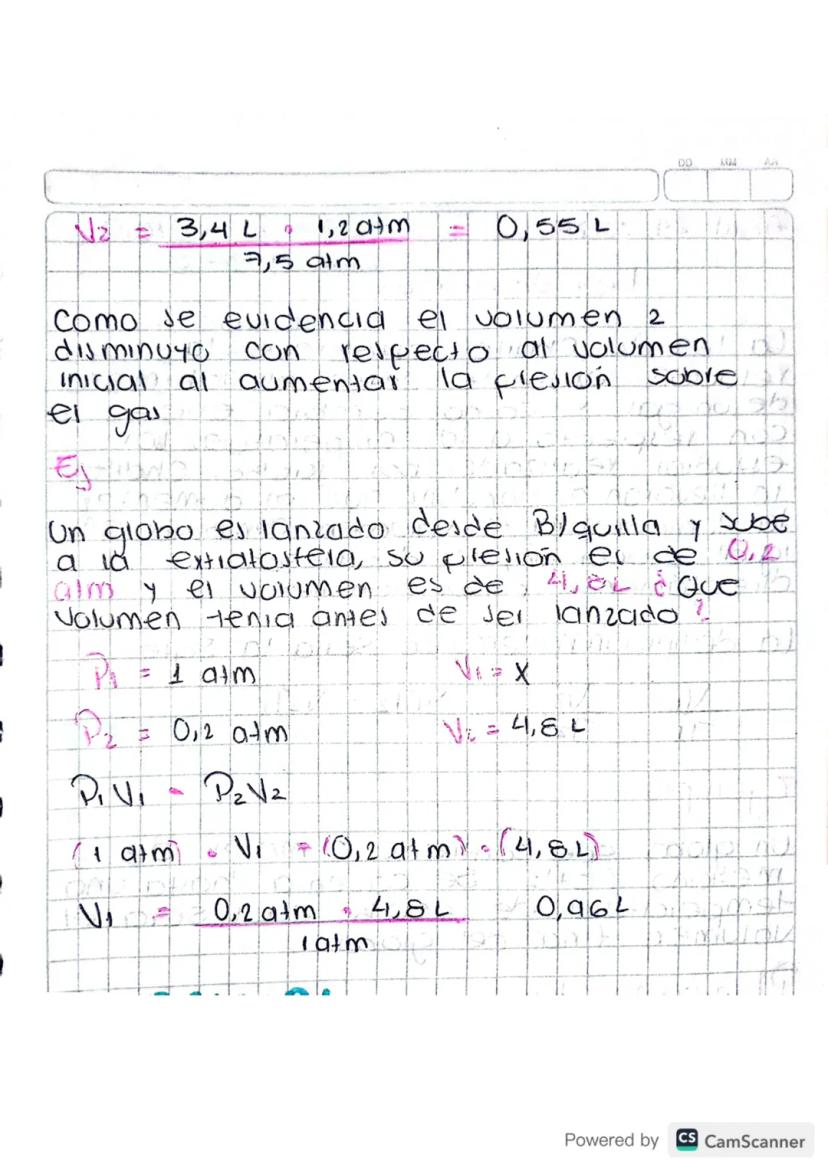 DD MM AA
V2 = 3,4 L • 1,2 atm = 0,55 L
7,5 atm
Como se evidencia el volumen 2
disminuyo con respecto al volumen
inicial al aumentar la presión sobre
el gas
Ej
Un globo es lanzado desde B/quilla y sube
a la extratosfera, su presión es de 0,2
atm y el volumen es de 4,8L ¿Que
volumen tenia antes de ser lanzado?
P1 = 1 atm V1 = X
P2 = 0,2 atm V2 = 4,8 L
P1V1 = P2V2
(1 atm) • V1 = (0,2 atm) • (4,8L)
V1 = 0,2 atm • 4,8 L 0,96 L
1 atm
Powered by CS CamScanner